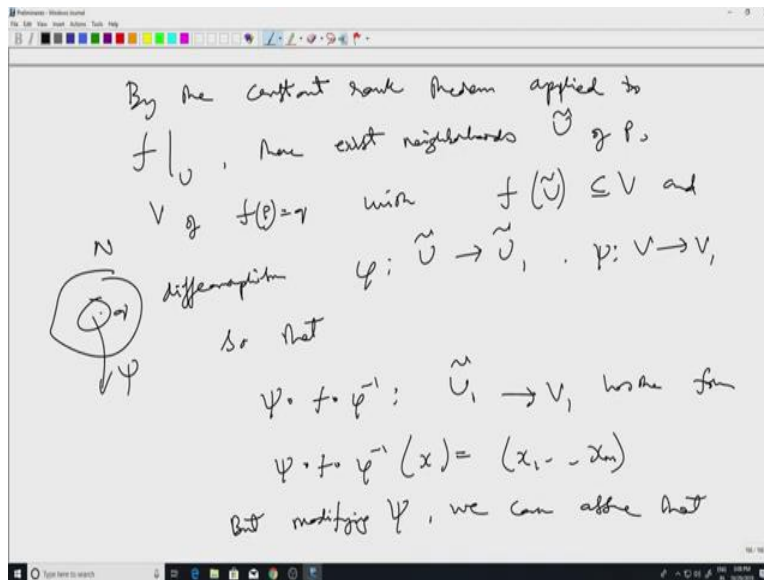 Preliminaries - Windows Journal
File Edit View Insert Actions Tools Help
By the constant rank theorem applied to
f|_U, there exist neighborhoods Ũ of p,
V of f(p)=q with f(Ũ) ⊆ V and
N
diffeomorphism φ: Ũ → Ũ₁, ψ: V → V₁
q
so that
ψ
ψ∘f∘φ⁻¹: Ũ₁ → V₁ has the form
ψ∘f∘φ⁻¹(x) = (x₁ - - xₘ)
But modifying ψ, we can assume that
Type here to search